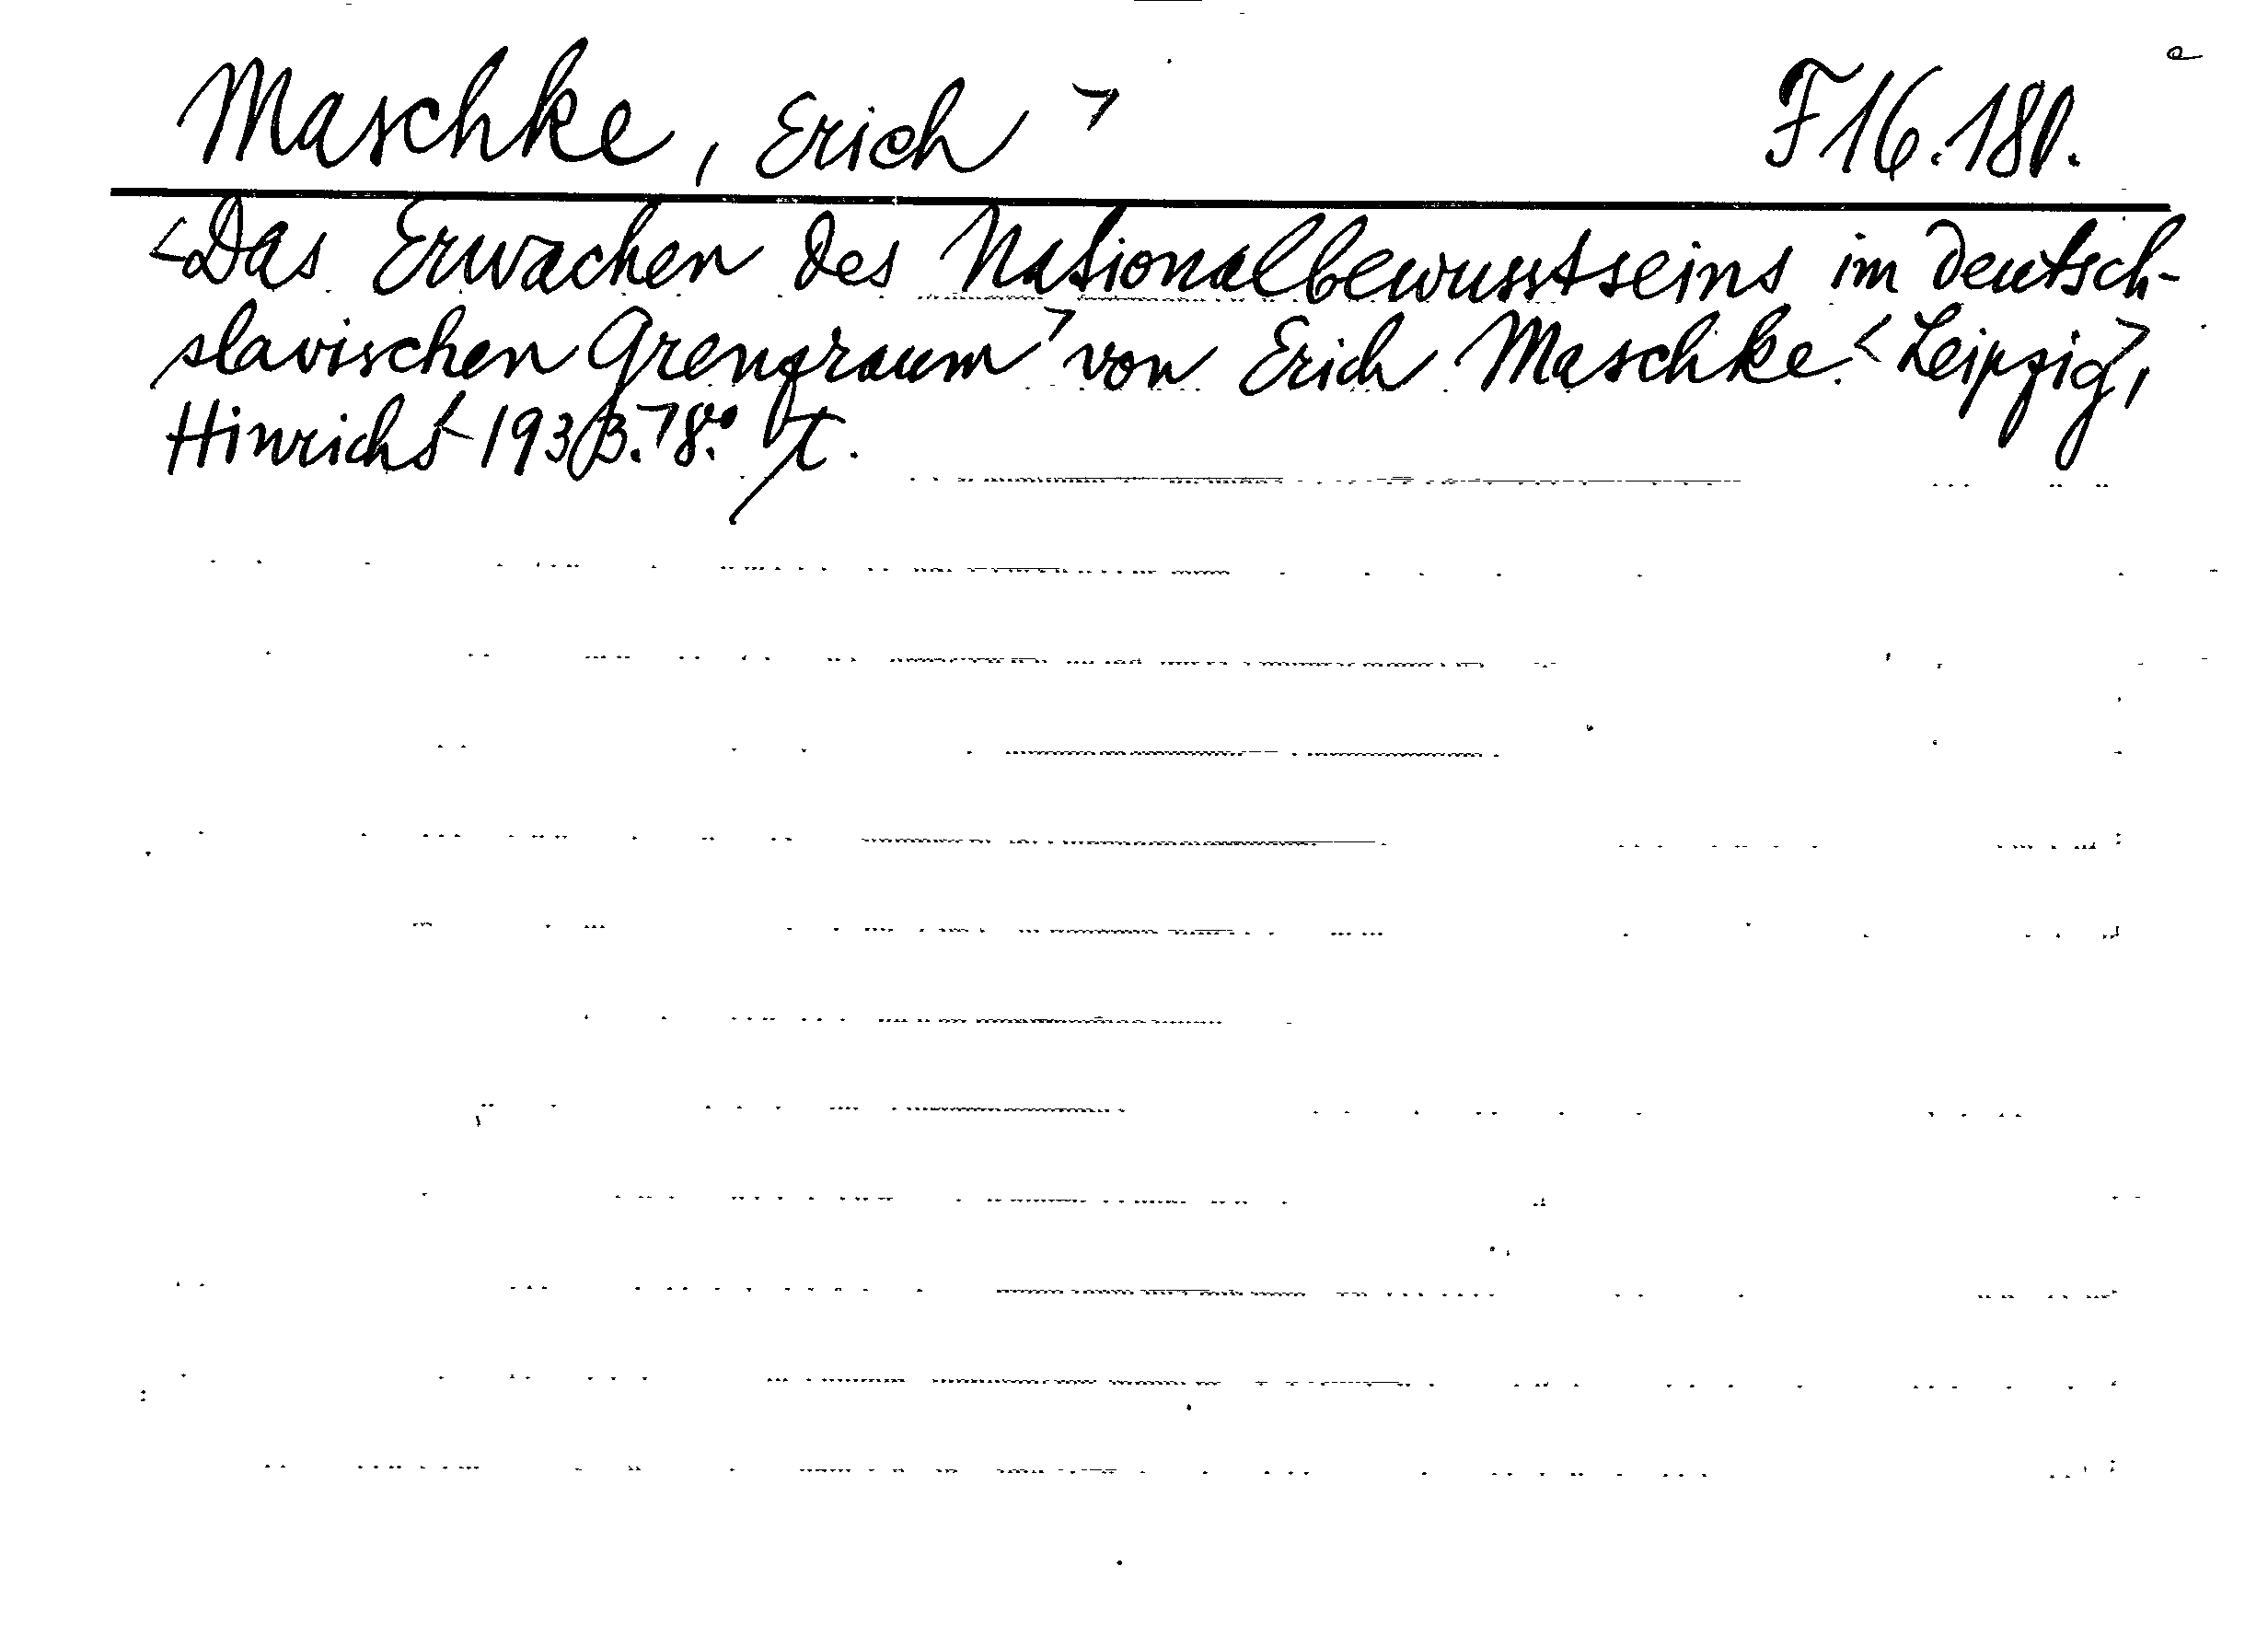 Maschke, Erich > F 16.180.
<Das Erwachen des Nationalbewusstseins im deutsch-
slavischen Grenzraum> von Erich Maschke. <Leipzig>,
Hinrichs <1933.> 8.° T.